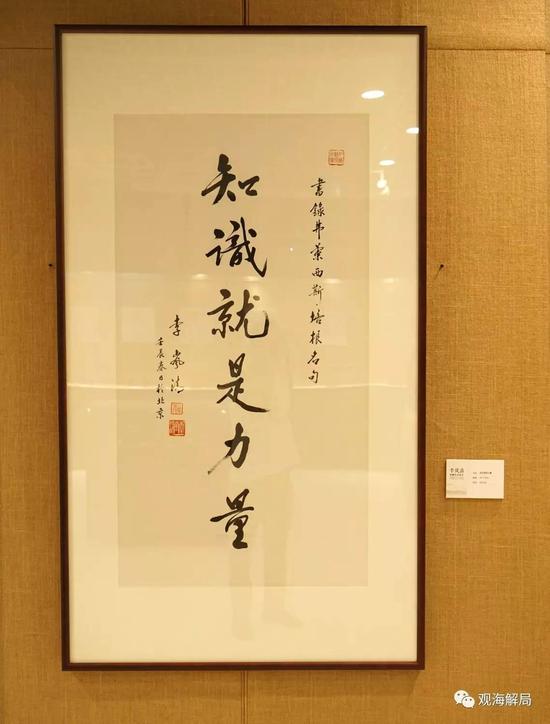 書錄弗蘭西斯·培根名句
知識就是力量
李嵐清
壬辰春日於北京
李岚清
观海解局